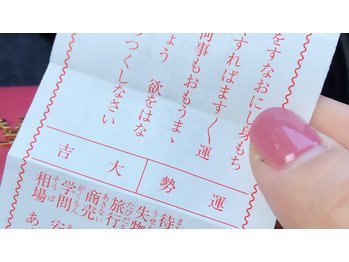 をすなおにし身もち
すればますく運
何事もおもうまゝ
ょう 欲をはな
つくしなさい
運勢
大吉
待
失物
旅行
商売
学問
相場